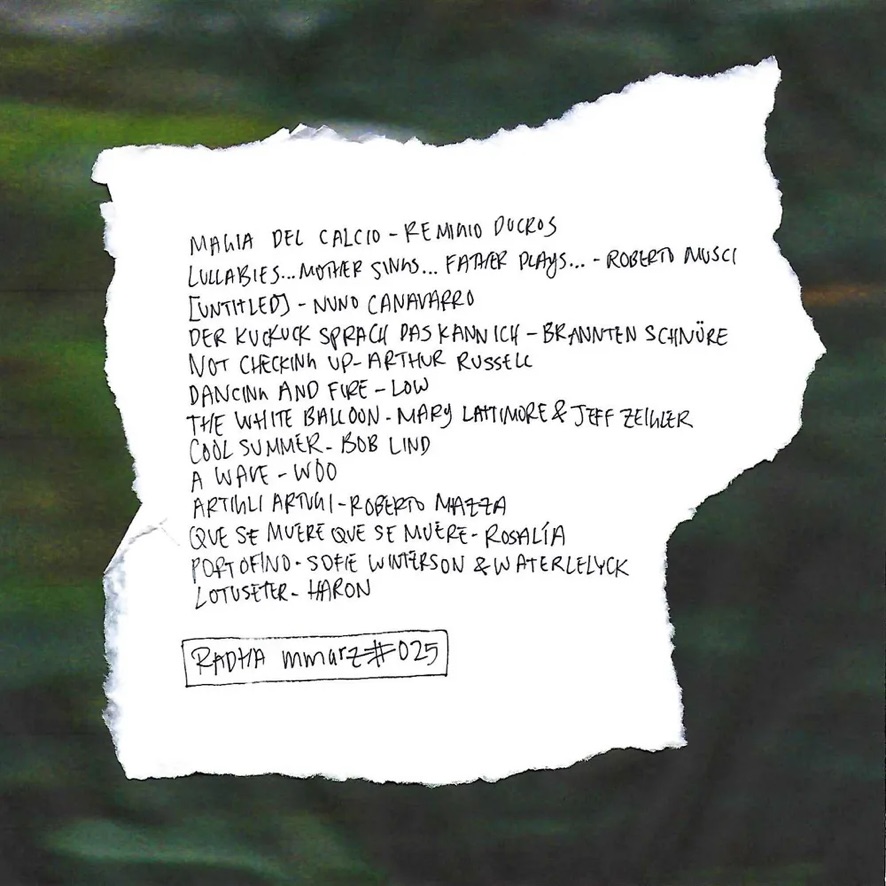 MAGIA DEL CALCIO - REMIGIO DUCROS
LULLABIES... MOTHER SINGS... FATHER PLAYS... - ROBERTO MUSCI
[UNTITLED] - NUNO CANAVARRO
DER KUCKUCK SPRACH DAS KANN ICH - BRANNTEN SCHNÜRE
NOT CHECKING UP - ARTHUR RUSSELL
DANCING AND FIRE - LOW
THE WHITE BALLOON - MARY LATTIMORE & JEFF ZEIGLER
COOL SUMMER - BOB LIND
A WAVE - WOO
ARTIGLI ARTUGI - ROBERTO MAZZA
QUE SE MUERE QUE SE MUERE - ROSALÍA
PORTOFINO - SOFIE WINTERSON & WATERLELYCK
LOTUSETER - HARON
RADHA mmarz #025